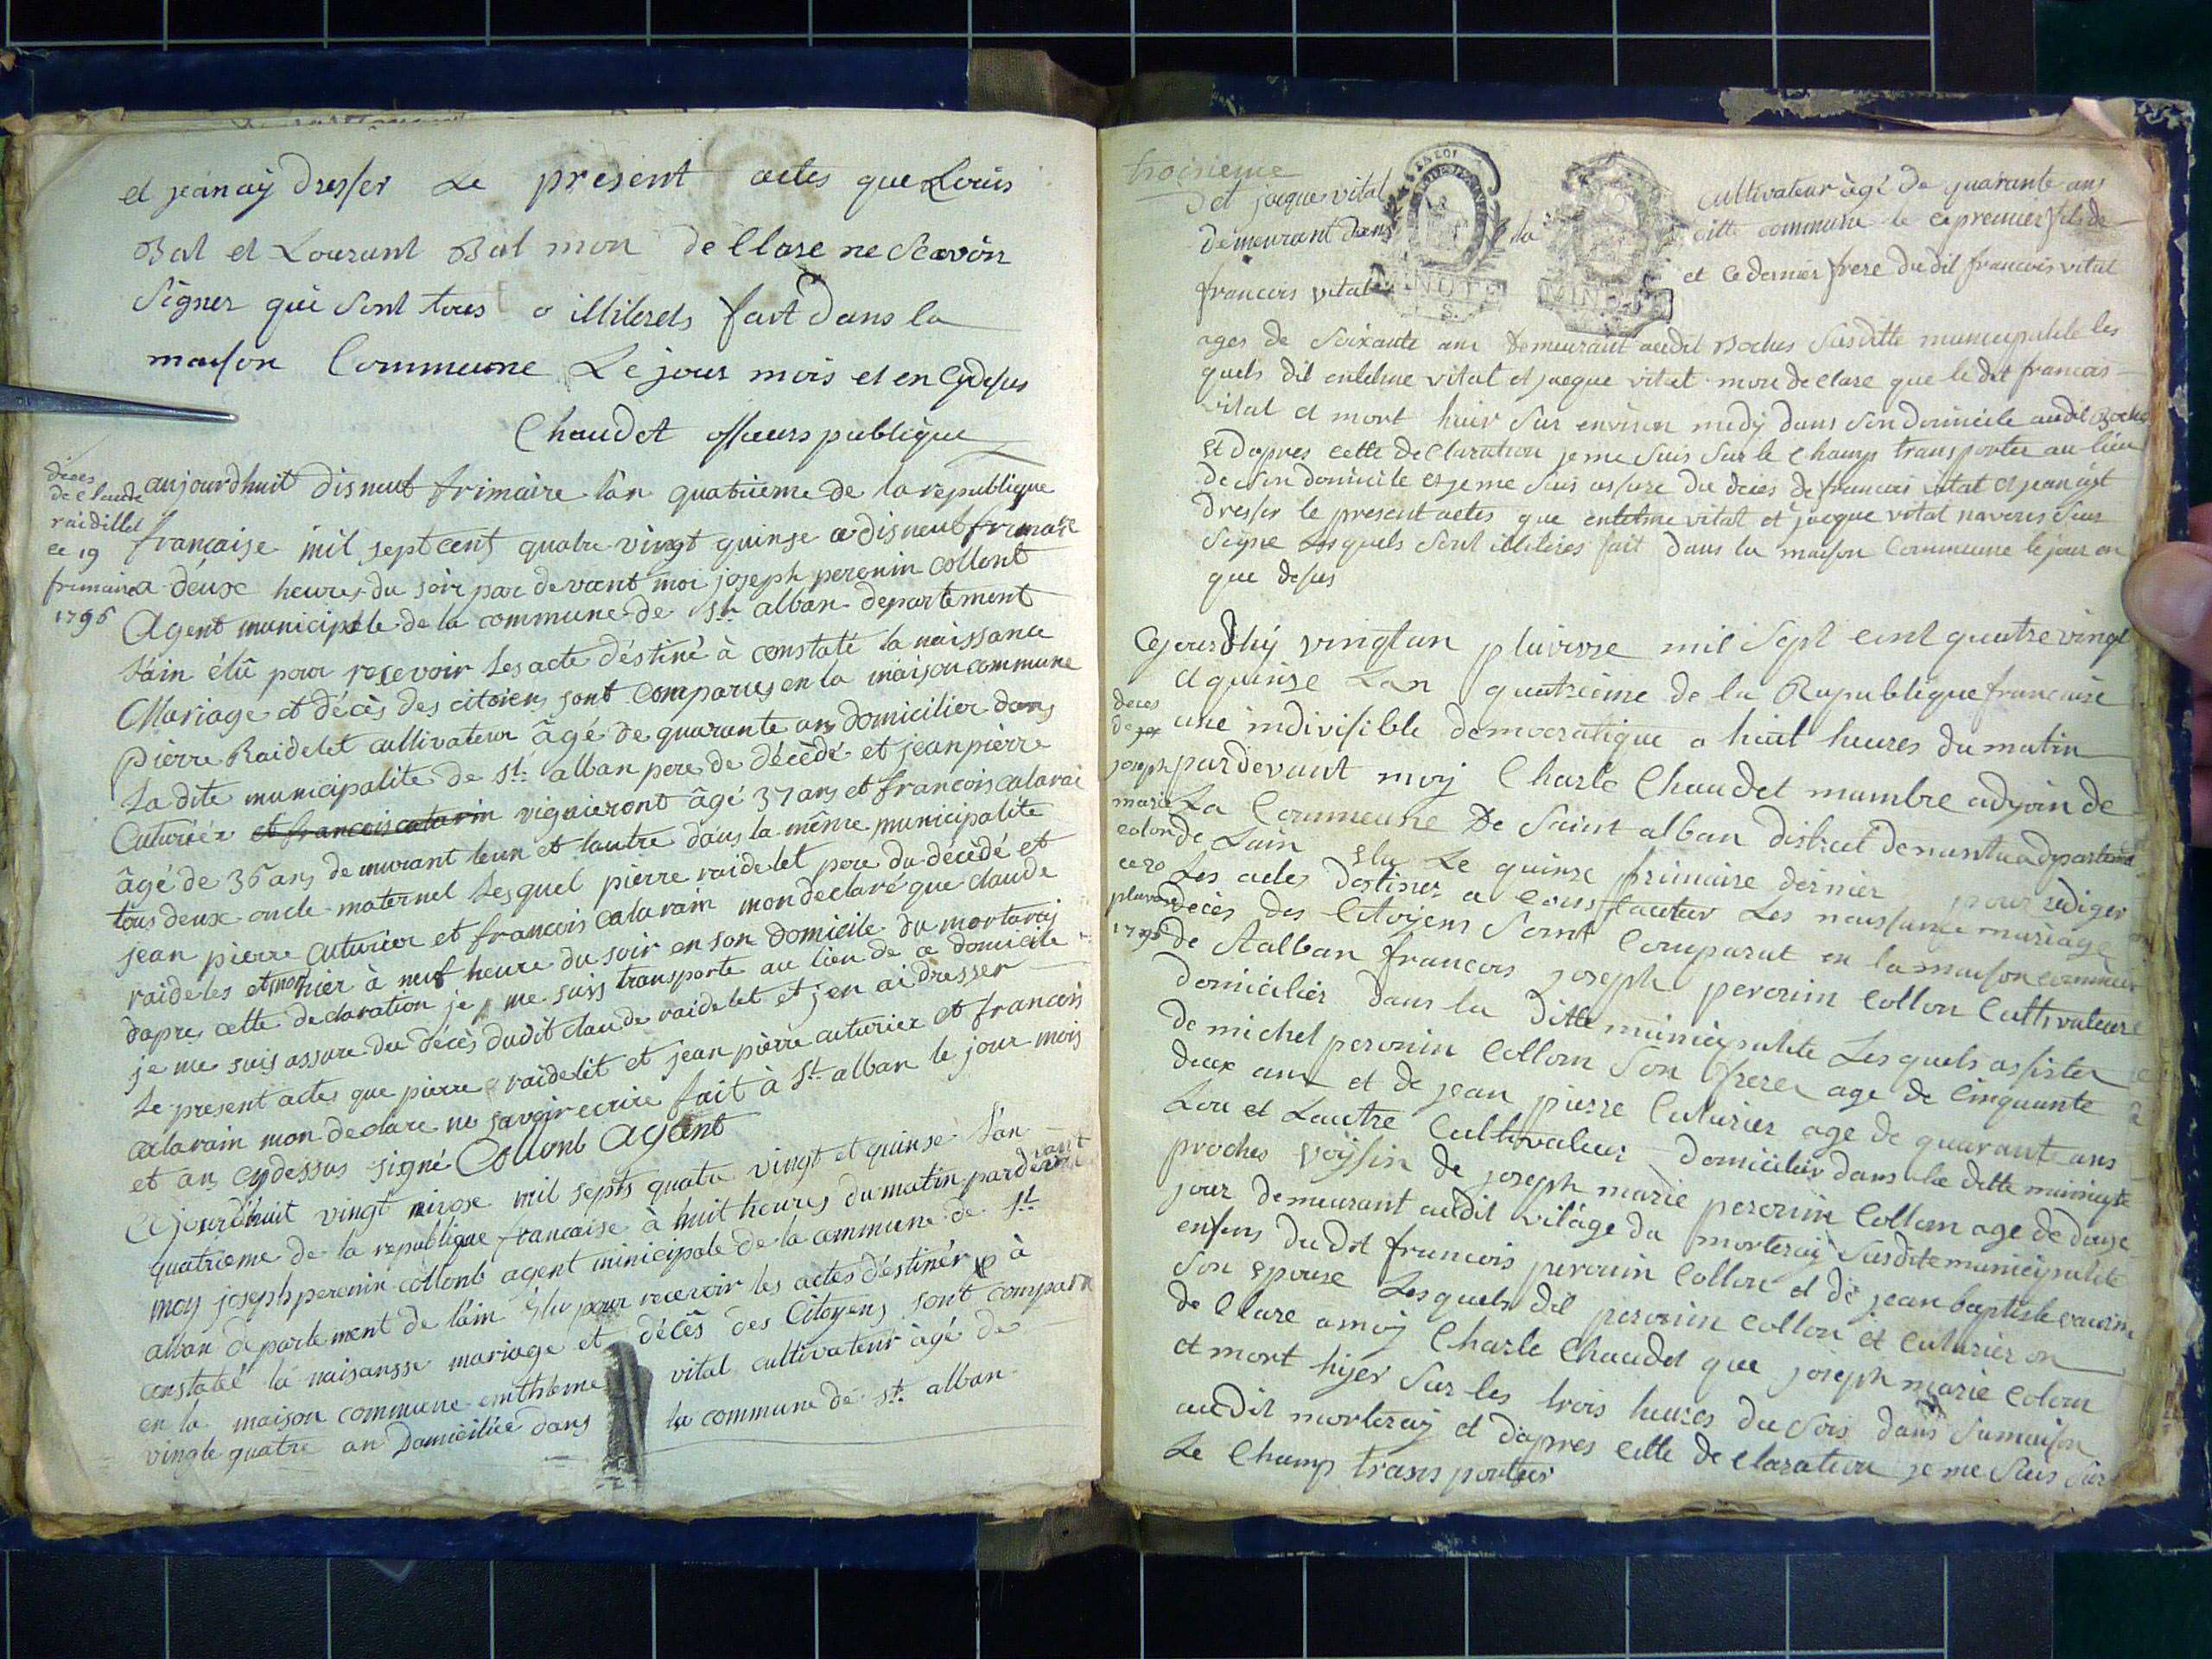 et jeanaÿ dresser Le present actes que Louis
Bal et Lourant Bal mon de Clare ne Scavoir
Signer qui Sont tous o illiterets fait dans la
maison Commeune Le jour mois et en Cydesus
Chaudet officiers publique
deces
de Claude
raidillet
ce 19
frimaire
1795
aujourdhuit disneuf frimaire l'an quatrieme de la republique
française mil sept cent quatre vingt quinse a disneuf frimaire
a deuxe heures du soir par devant moi joseph peronin collont
Agent municipale de la commune de St. alban departement
lain élû pour resevoir les acte déstiné à constaté la naissance
Mariage et décès des citoiens sont comparus en la maison commune
pierre Raidelet cultivateur âgé de quarante ans domicilier dans
La dite municipalite de St. alban pere de décédé et jean pierre
Cuturier et francois catarin vignieront âgé 37 ans et francois calarai
âgé de 36 ans demeurant leun et lautre dans la même municipalite
tous deux oncle maternel Lesquel pierre raidelet pere du décédé et
jean pierre cuturier et francois calarain mon declaré que claude
raideles et mort hier à neuf heure du soir en son domicile du mortaraij
dapres cette declaration je me suis transporte au lieu de ce domicile
je me suis assure du décès dudit claude raidelet et j'en ai dresser
Le present actes que pierre raidelit et jean pierre cuturier et francois
calarain mon declare ne savoir ecrire fait à St. alban le jour mois
et an cydessus signé Collonb Agent
Cejourdhuit vingt nivose mil septs quatre vingt et quinse l'an
quatrieme de la republique francaise à huit heures du matin pardevant
moy joseph peronin collonb agent minicipale de la commune de St.
alban departement de lain élu pour recevoir les actes déstinér à
constaté la naisansse mariage et décês des Citoyens sont compara
en la maison commune enthleme vital cultivateur âgé de
vingte quatre an Domiciliée dans la commune de St. alban
troisieme
et jacque vital cultivateur àgé de quarante ans
demeurant dans la ditte commune le cepremier fils de
francois vital et ce dernier frere dudit francois vital
MINUTE MINUTE
ages de Soixante ans demeurant audit Boches Susditte municipalité les
quels dit entelme vital et jacque vital mon de clare que le dit francois
vital et mort hier Sur environ medÿ dans Son domicile audit Boches
Et dapres cette declaration je me Suis Sur le Champ transporter au lieu
de Son domicile et je me Suis assure du deces de francois vital et jean aÿt
dresser le present actes que entelme vital et jacque vital
Signe Lesquels Sont illiteres fait dans la maison Commeune le jour an
que desus
Cejourdhÿ vingt un pluviose mil Sept cent quatre vingt
et quinse Lan quatrieme de la Republique francaise
une indivisible democratique a huit heures du matin
deces
de
joseph
marie
colon
ce 20
pluviose
1795
pardevant moÿ Charle Chaudet mumbre adjoin de
La Commeune De Saint alban distrect de nantua departement
de Lain Elu Le quinse frimaire dernier pour rediger
Les actes destiner a Les naissance mariage
deces des Citoÿens Sont Comparut en la maison commeune
de Stalban francois joseph peronin Collon Cultivateur
domicilier dans la Ditte municipalite Lesquels assister
de michel peronin Collom Son frere age de Cinquante
deux ans et de jean pierre Cuturier age de quarante ans
Lon et Lautre Cultivateur domicilier dans la ditte municipte
proches voÿsin de joseph marie peronin Collom age de douze
jour demeurant audit vilage du morteraÿ Susdite municipalite
enfens du dit francois peronin Collon et de jean baptiste
Son epouse Lesquels dit peronin Collon et Cuturier on
de Clare a moÿ Charle Chaudet que joseph marie Colom
et mort hijer Sur les trois heures du Sois dans Sa maison
audit morteraÿ et dapres cette de claration je me Suis Sur
Le Champ transporter